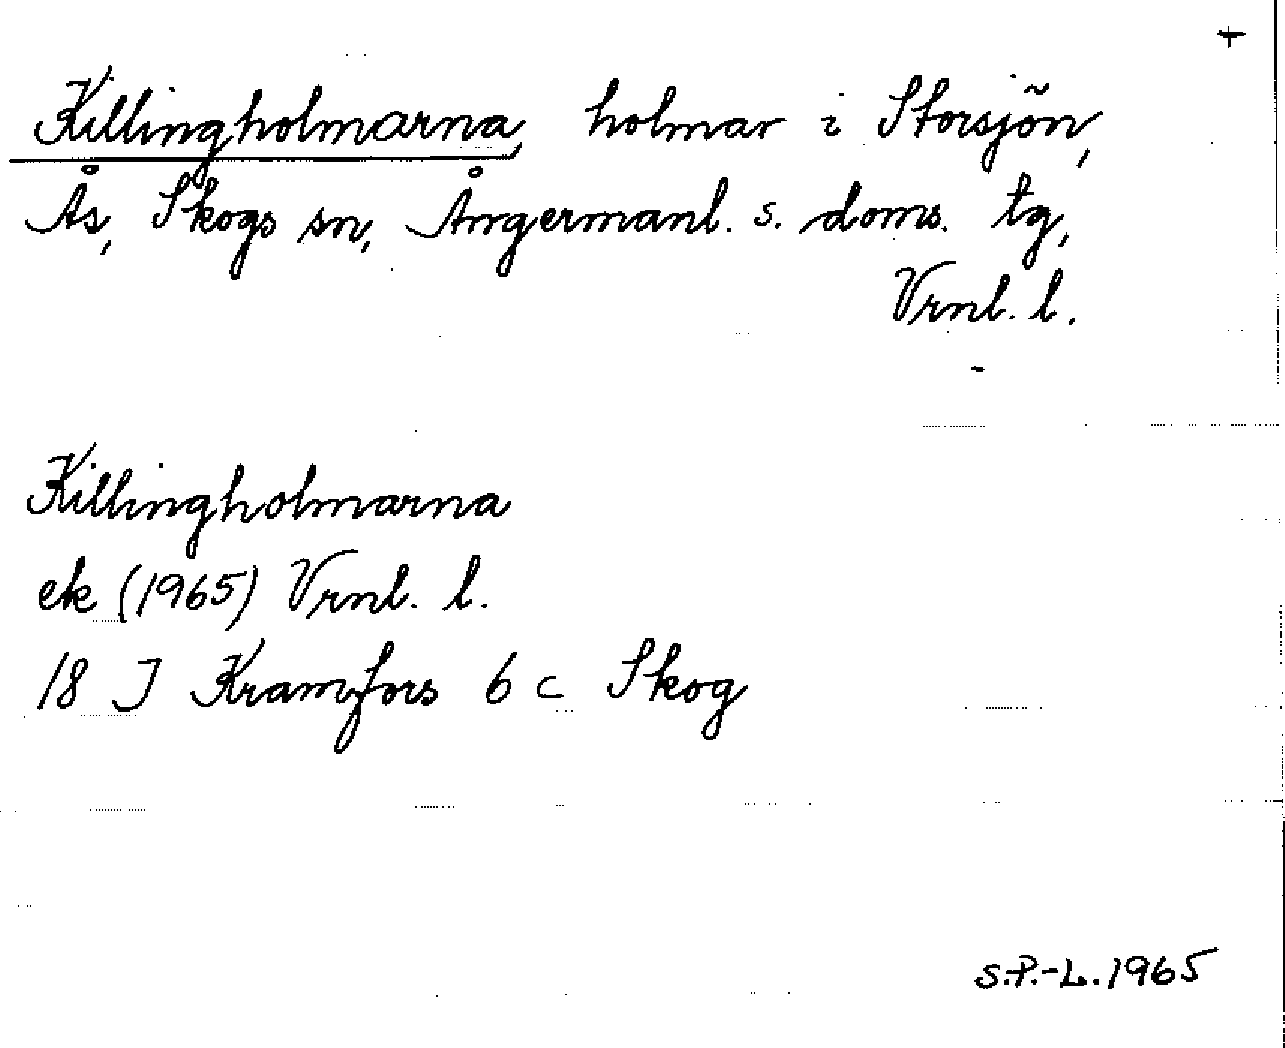 +
Killingholmarna, holmar i Storsjön,
Ås, Skogs sn, Ångermanl. s. doms. tg,
Vrnl. l.
Killingholmarna
ek (1965) Vrnl. l.
18 J Kramfors 6 c Skog
S.P.-L. 1965